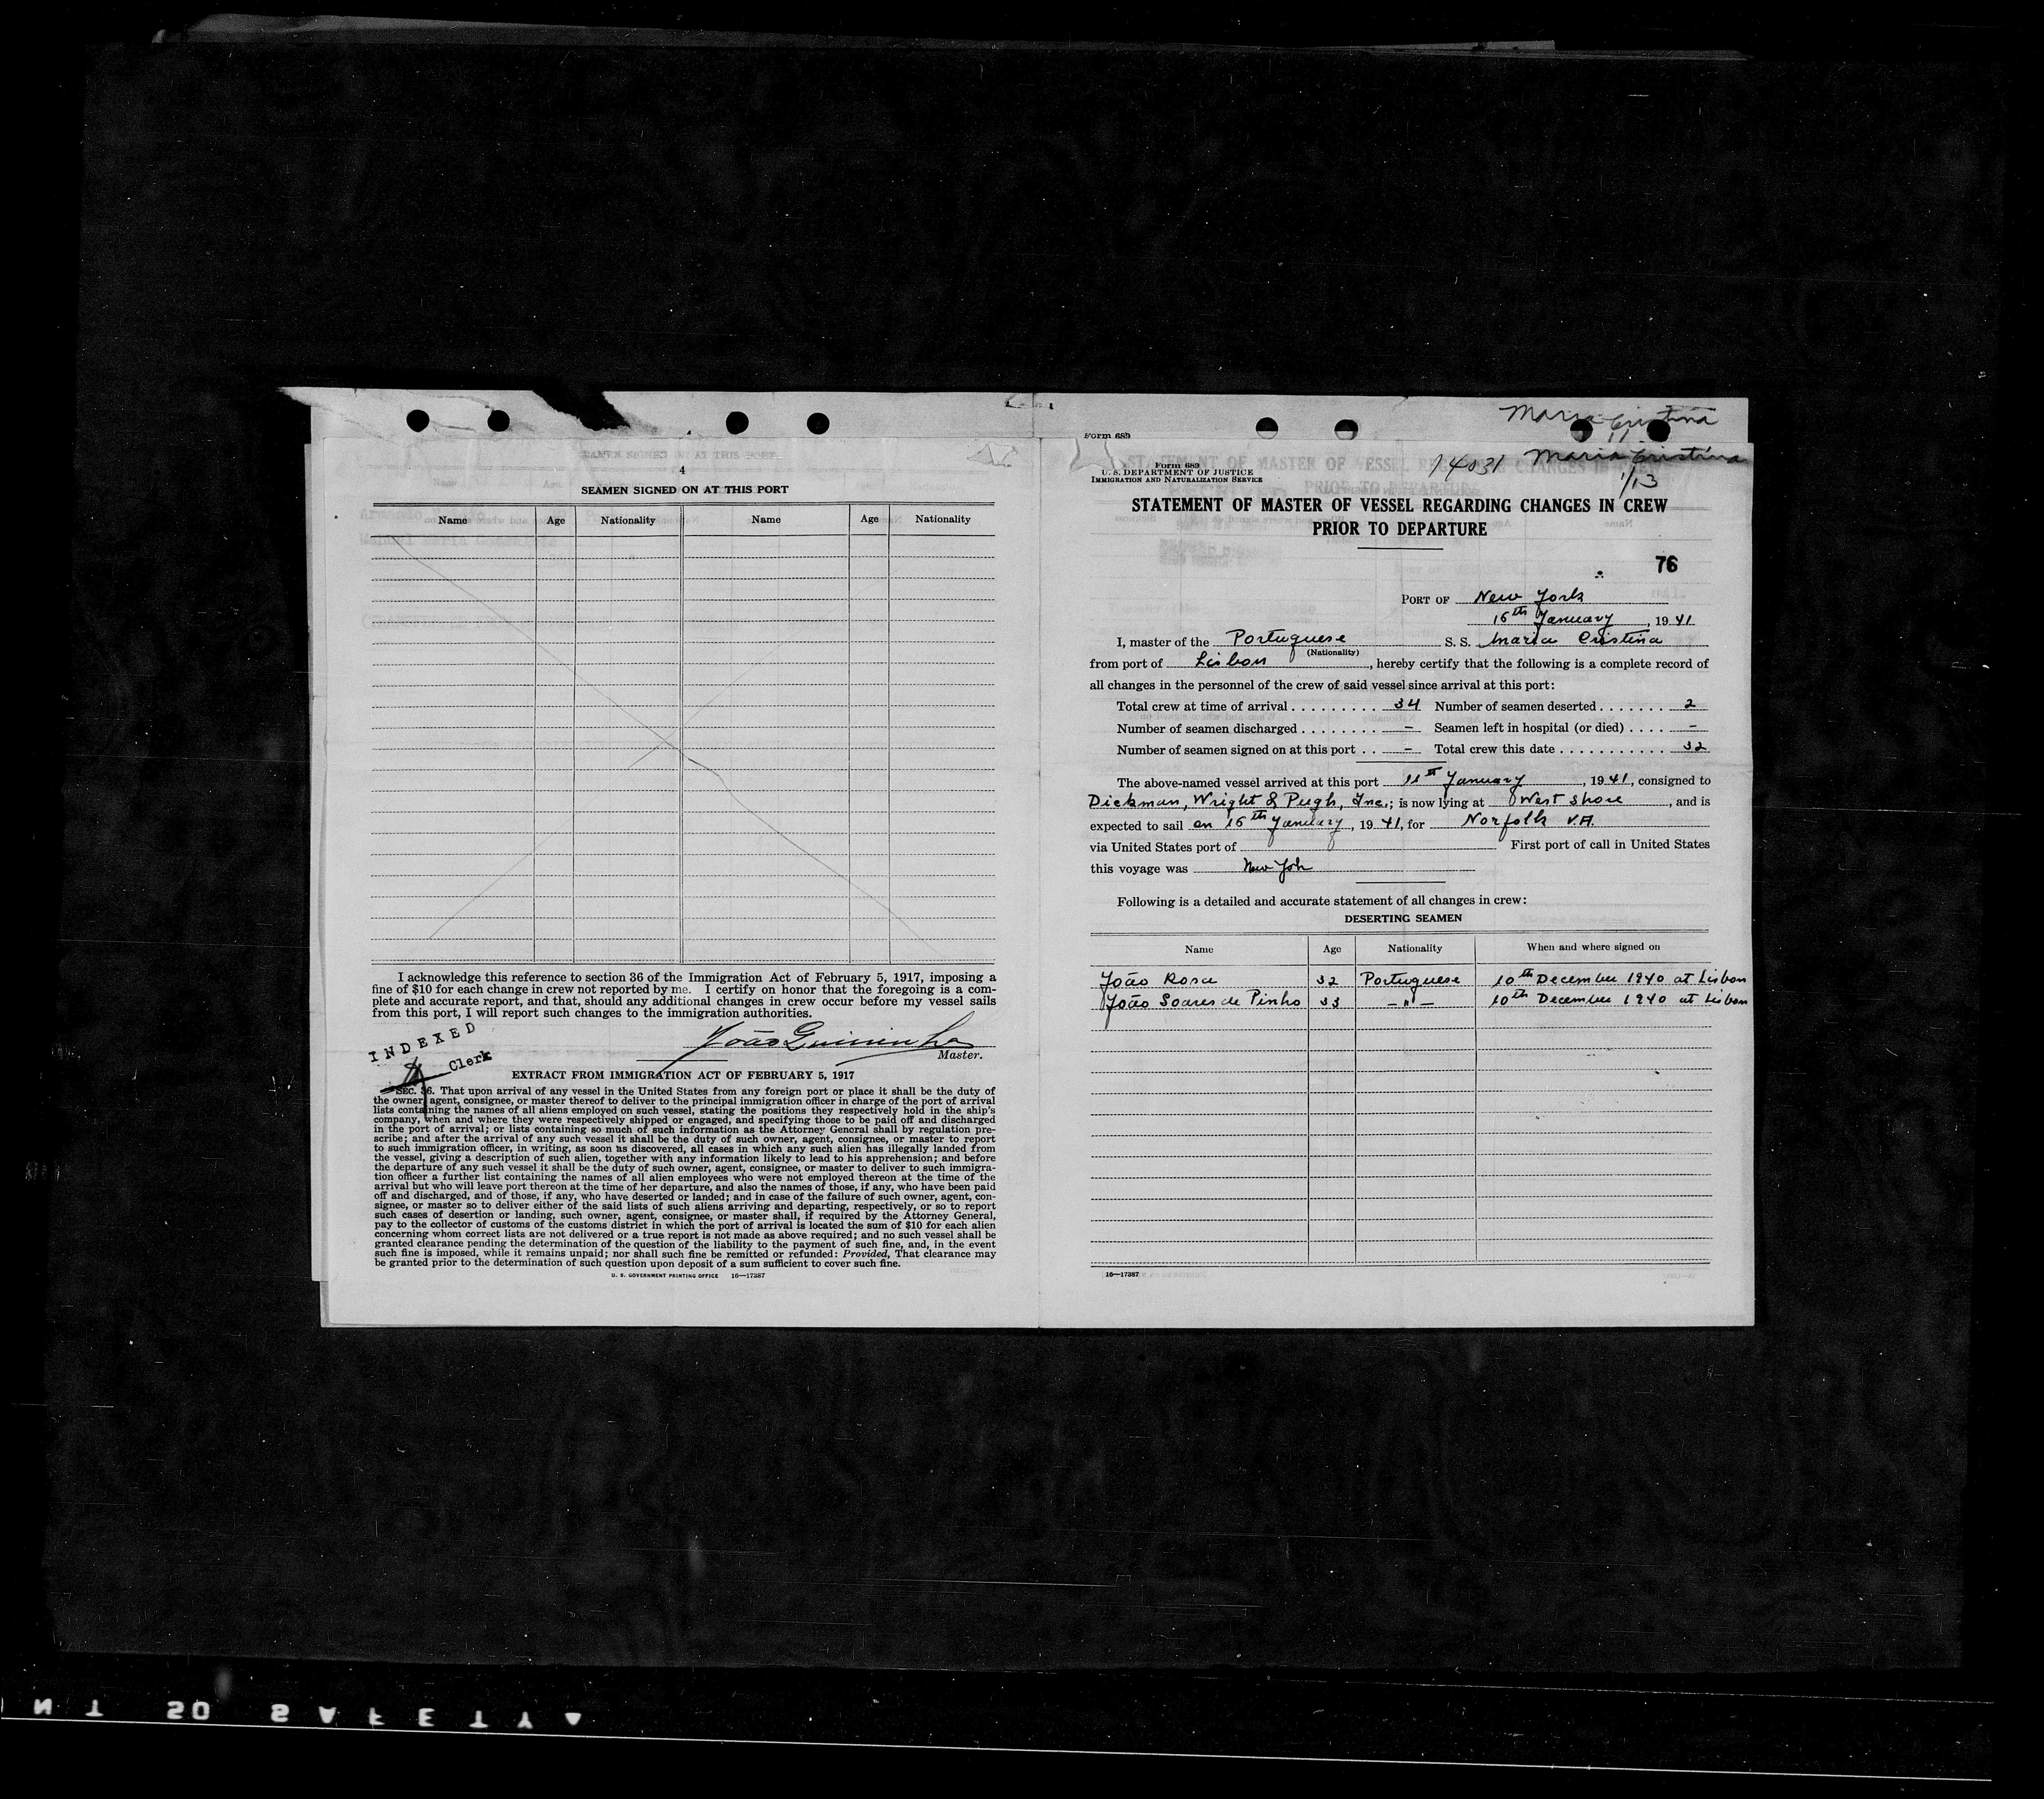 4
SEAMEN SIGNED ON AT THIS PORT
Name Age Nationality Name Age Nationality
I acknowledge this reference to section 36 of the Immigration Act of February 5, 1917, imposing a
fine of $10 for each change in crew not reported by me. I certify on honor that the foregoing is a com-
plete and accurate report, and that, should any additional changes in crew occur before my vessel sails
from this port, I will report such changes to the immigration authorities.
INDEXED
Clerk
João
Master.
EXTRACT FROM IMMIGRATION ACT OF FEBRUARY 5, 1917
SEC. 36. That upon arrival of any vessel in the United States from any foreign port or place it shall be the duty of
the owner, agent, consignee, or master thereof to deliver to the principal immigration officer in charge of the port of arrival
lists containing the names of all aliens employed on such vessel, stating the positions they respectively hold in the ship's
company, when and where they were respectively shipped or engaged, and specifying those to be paid off and discharged
in the port of arrival; or lists containing so much of such information as the Attorney General shall by regulation pre-
scribe; and after the arrival of any such vessel it shall be the duty of such owner, agent, consignee, or master to report
to such immigration officer, in writing, as soon as discovered, all cases in which any such alien has illegally landed from
the vessel, giving a description of such alien, together with any information likely to lead to his apprehension; and before
the departure of any such vessel it shall be the duty of such owner, agent, consignee, or master to deliver to such immigra-
tion officer a further list containing the names of all alien employees who were not employed thereon at the time of the
arrival but who will leave port thereon at the time of her departure, and also the names of those, if any, who have been paid
off and discharged, and of those, if any, who have deserted or landed; and in case of the failure of such owner, agent, con-
signee, or master so to deliver either of the said lists of such aliens arriving and departing, respectively, or so to report
such cases of desertion or landing, such owner, agent, consignee, or master shall, if required by the Attorney General,
pay to the collector of customs of the customs district in which the port of arrival is located the sum of $10 for each alien
concerning whom correct lists are not delivered or a true report is not made as above required; and no such vessel shall be
granted clearance pending the determination of the question of the liability to the payment of such fine, and, in the event
such fine is imposed, while it remains unpaid; nor shall such fine be remitted or refunded: Provided, That clearance may
be granted prior to the determination of such question upon deposit of a sum sufficient to cover such fine.
U. S. GOVERNMENT PRINTING OFFICE 16—17387
Maria Cristina
Form 689
Form 689
U. S. DEPARTMENT OF JUSTICE
IMMIGRATION AND NATURALIZATION SERVICE
14031 Maria Cristina
1/13
STATEMENT OF MASTER OF VESSEL REGARDING CHANGES IN CREW
PRIOR TO DEPARTURE
76
PORT OF New York
16th January, 1941
I, master of the Portuguese S. S. Maria Cristina
(Nationality)
from port of Lisbon, hereby certify that the following is a complete record of
all changes in the personnel of the crew of said vessel since arrival at this port:
Total crew at time of arrival . . . . . . . . . . 34 Number of seamen deserted . . . . . . . 2
Number of seamen discharged . . . . . . . . – Seamen left in hospital (or died) . . . . –
Number of seamen signed on at this port . . – Total crew this date . . . . . . . . . . . . 32
The above-named vessel arrived at this port 11th January, 1941, consigned to
Dickman, Wright & Pugh, Inc.; is now lying at West Shore, and is
expected to sail on 16th January, 1941, for Norfolk V.A.
via United States port of First port of call in United States
this voyage was New York
Following is a detailed and accurate statement of all changes in crew:
DESERTING SEAMEN
Name Age Nationality When and where signed on
João Rosa 32 Portuguese 10th December 1940 at Lisbon
João Soares de Pinho 33 – " – 10th December 1940 at Lisbon
16—17387